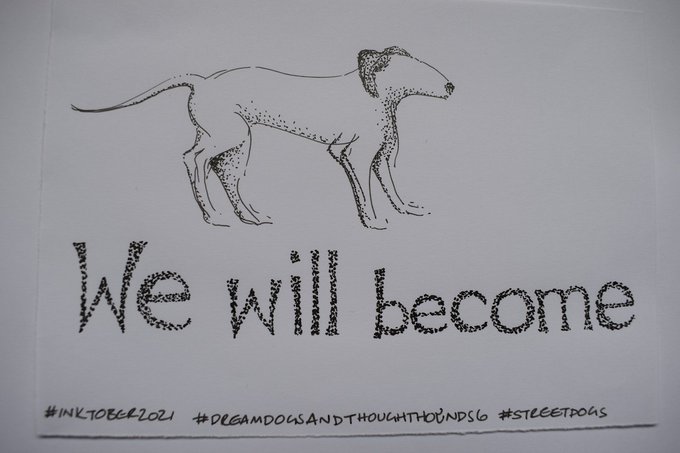 We will become
#INKTOBER2021 #DREAMDOGSANDTHOUGHTHOUNDS6 #STREETDOGS